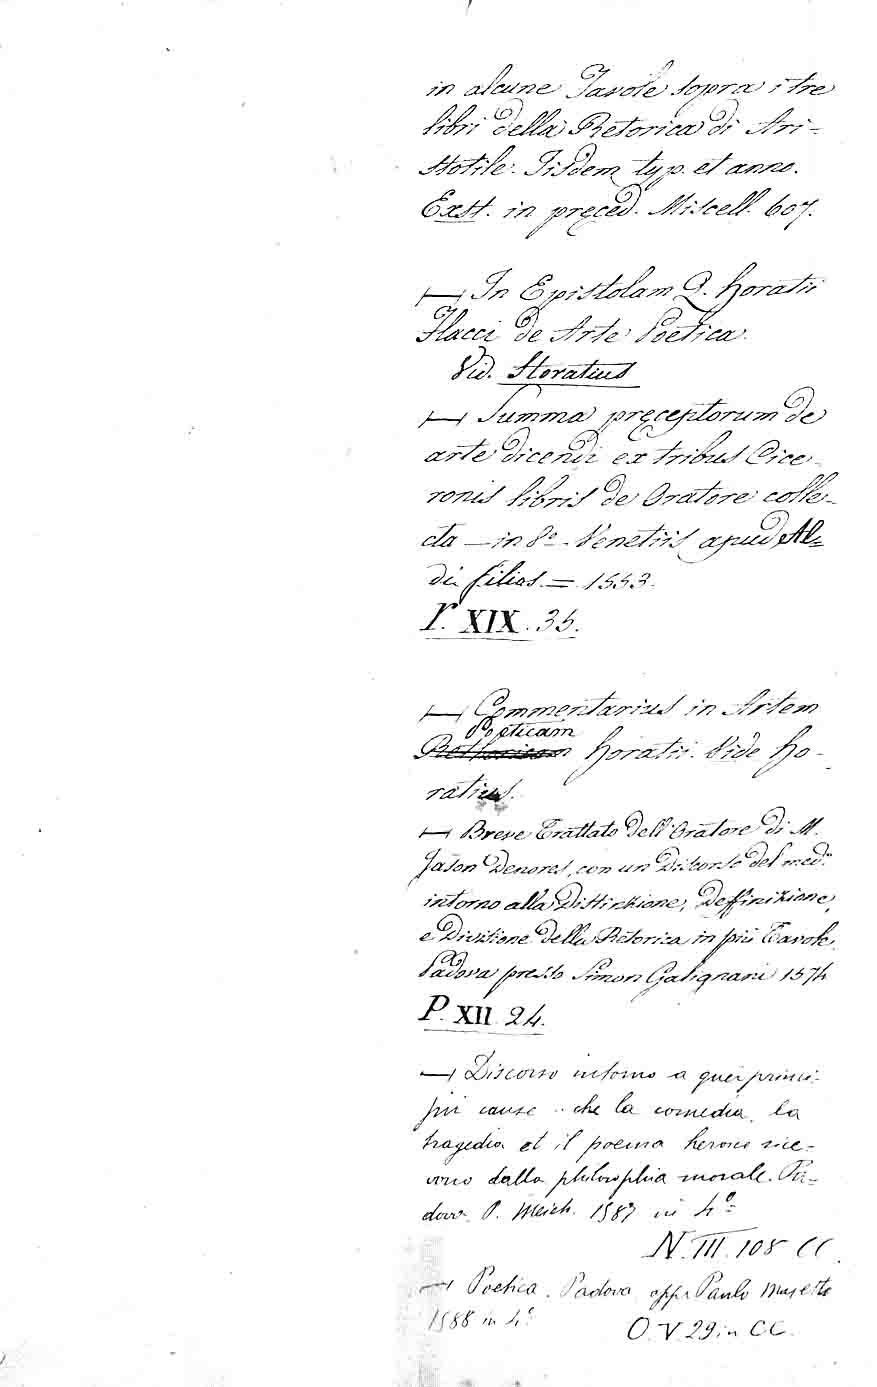 in alcune Tavole sopra i tre
libri della Retorica di Ari-
stotile. Iisdem typ. et anno.
Exst. in preced. Miscell. 607.
— In Epistolam Q. Horatii
Flacci de Arte Poetica.
Vid. Horatius
— Summa pręceptorum de
arte dicendi ex tribus Cice-
ronis libris de Oratore colle-
cta — in 8º. Venetiis apud Al=
di filios = 1553.
r. XIX. 35.
— Commentarius in Artem
Poeticam
Horatii. Vide Ho-
ratius.
— Breve Trattato dell'Oratore di M.
Jason Denores, con un Discorso del med.º
intorno alla Distinzione, Deffinizione,
e Divisione della Retorica in più Tavole.
Padova presso Simon Galignani 1574
P. XII. 24.
— Discorso intorno a quei princi-
pii cause che la comedia, la
tragedia et il poema heroico rice-
vono dalla philosophia morale. Pa=
dova. P. Meieh. 1587 in 4º=
N. III. 108 CC.
— Poetica. Padova app. Paulo
1588 in 4º
O. V. 29 in CC.